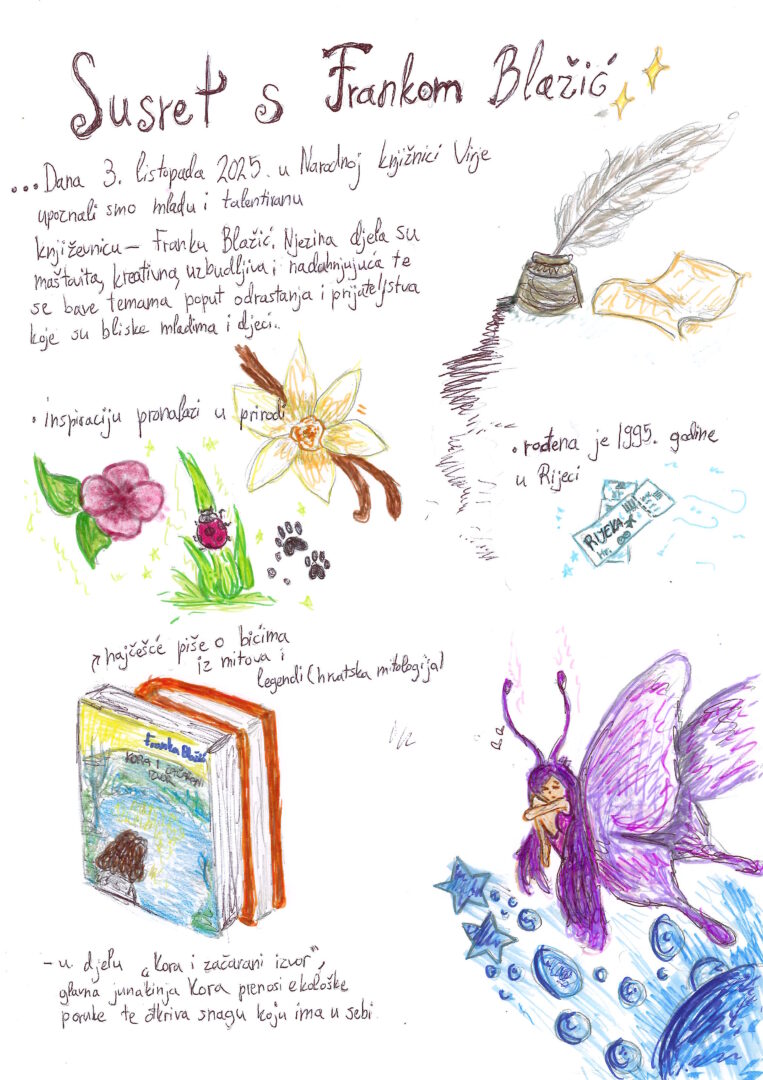 Susret s Frankom Blažić
...Dana 3. listopada 2025. u Narodnoj knjižnici Virje
upoznali smo mladu i talentiranu
književnicu – Franku Blažić. Njezina djela su
maštovita, kreativna, uzbudljiva i nadahnjujuća te
se bave temama poput odrastanja i prijateljstva
koje su bliske mladima i djeci.
• inspiraciju pronalazi u prirodi
• rođena je 1995. godine
u Rijeci
RIJEKA
Hr.
↗ najčešće piše o bićima
iz mitova i
legendi (hrvatska mitologija)
Franka Blažić
KORA I ZAČARANI
IZVOR
- u djelu "Kora i začarani izvor",
glavna junakinja Kora prenosi ekološke
poruke te otkriva snagu koju ima u sebi.